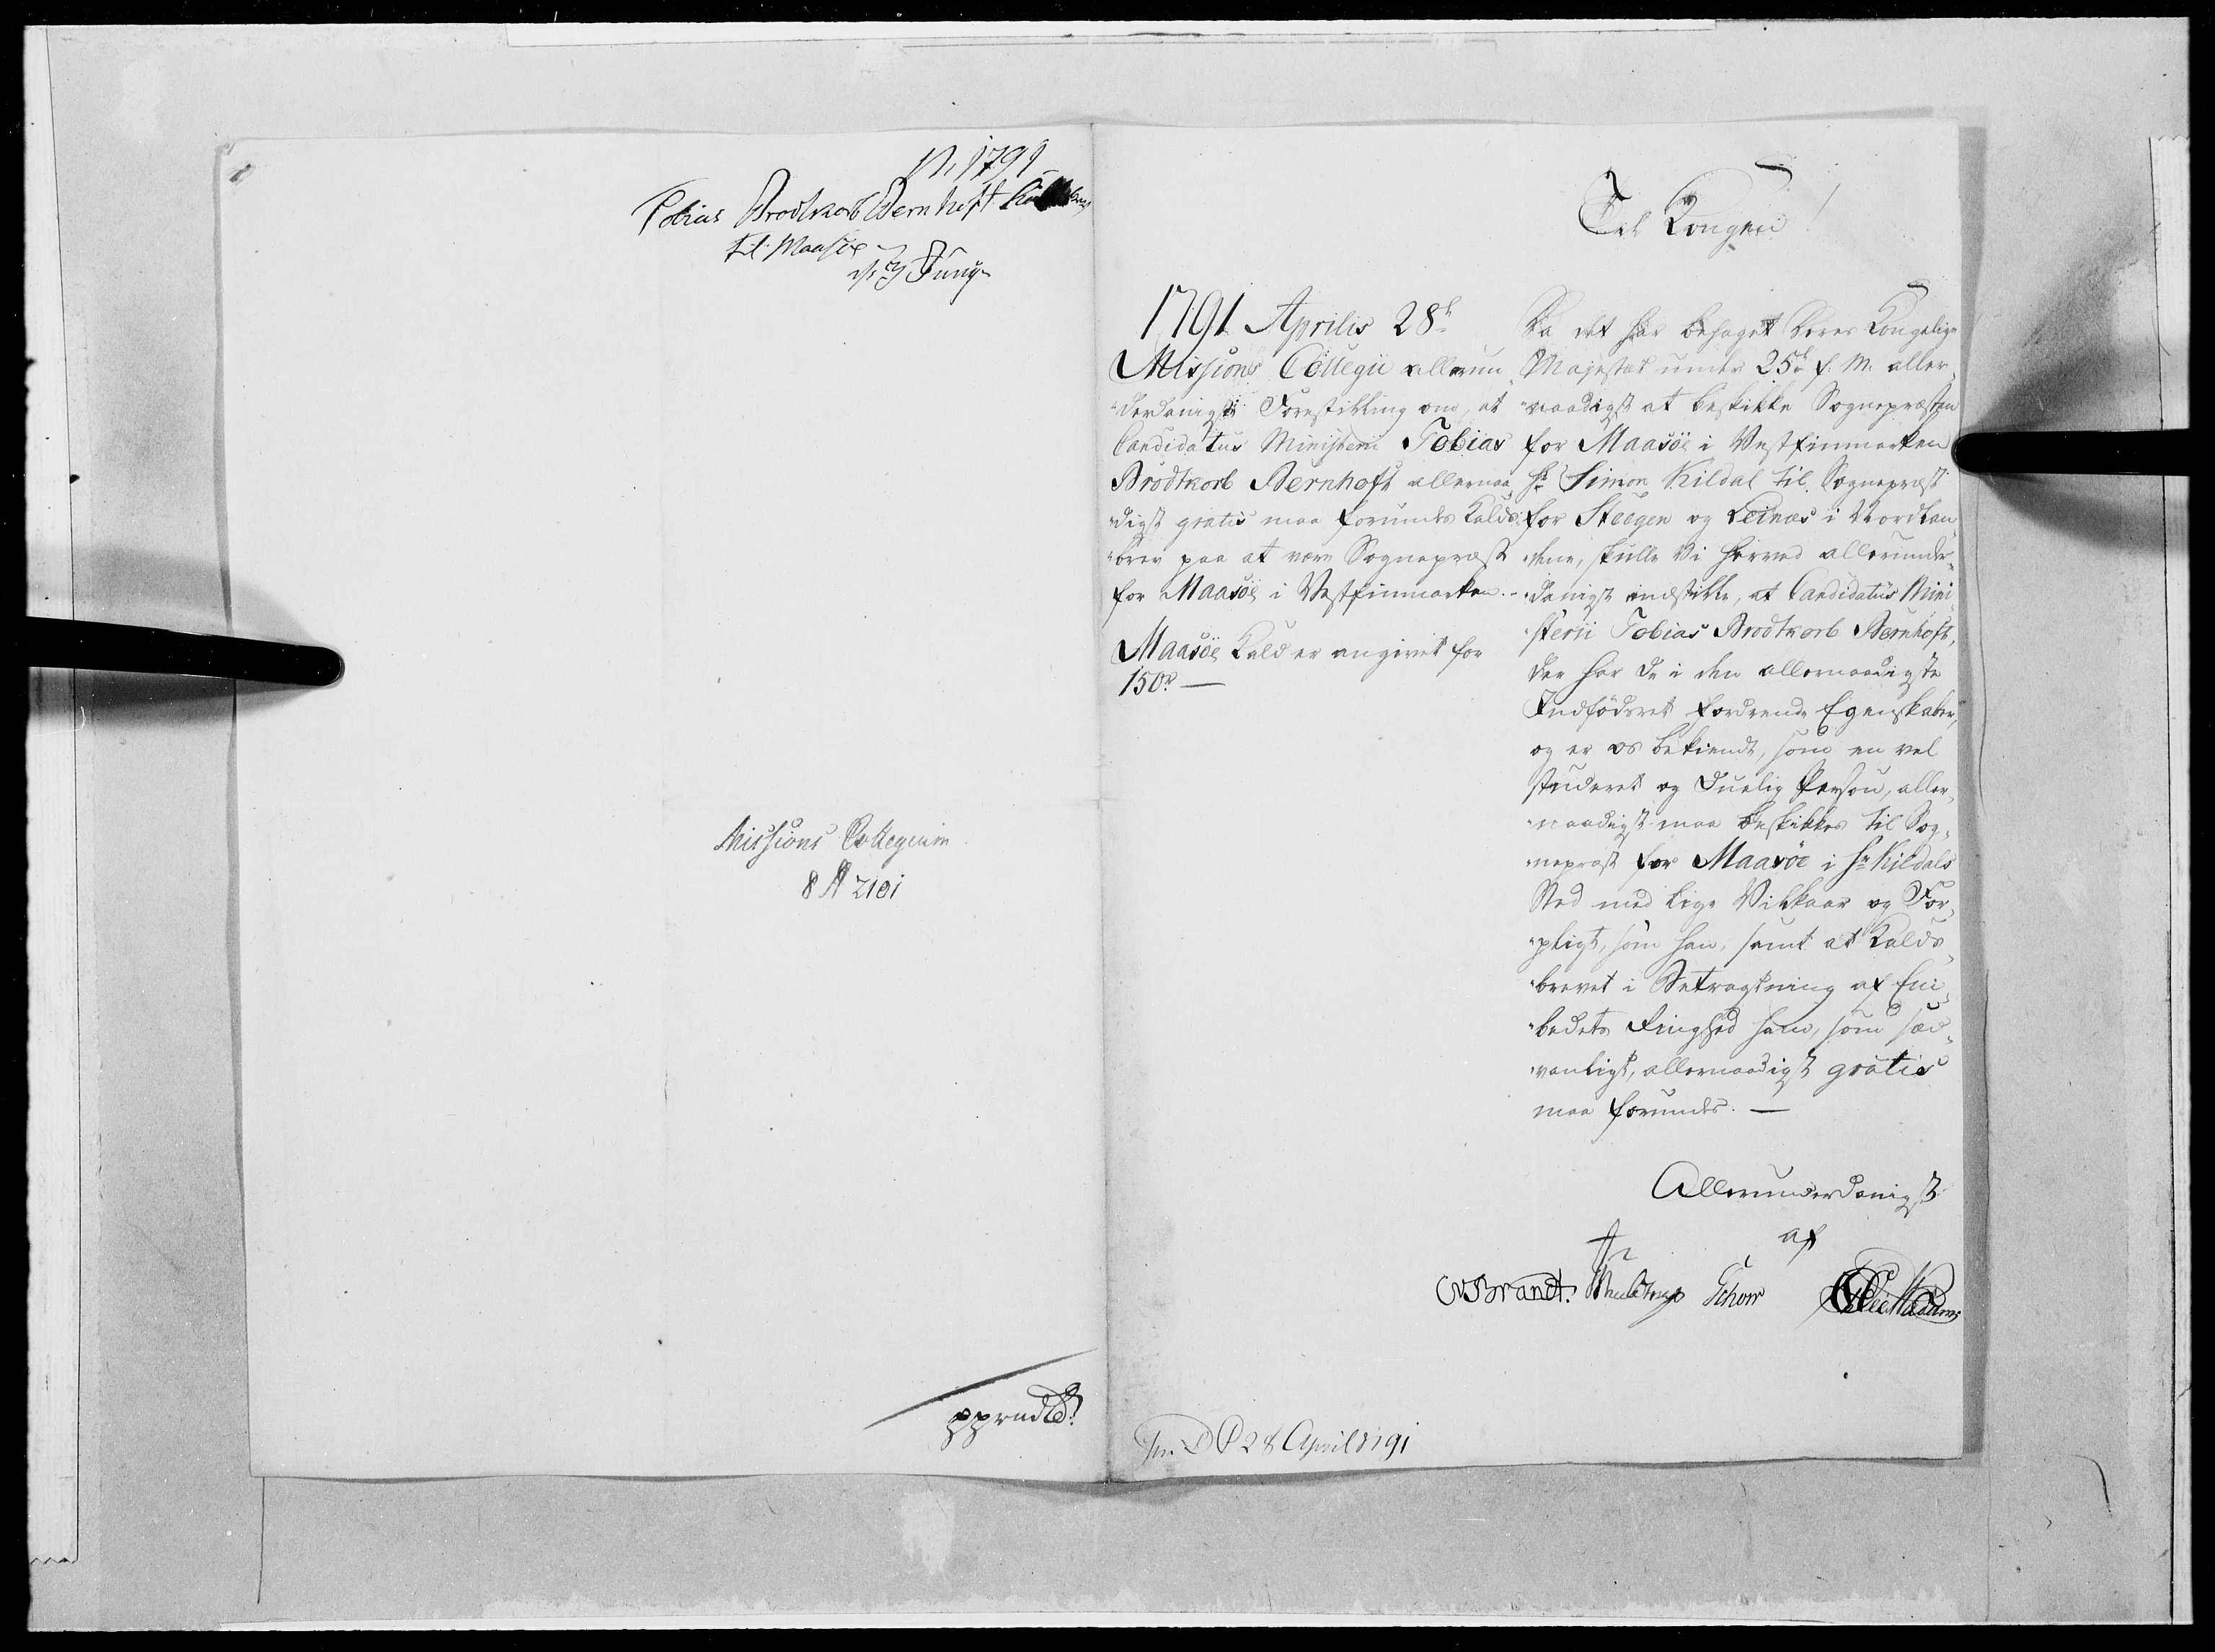 1791
Tobias Brodtkorb Bernhoft
til Maasöe
Missions Collegium
8 A 2101
Til Kongen!
1791 Aprilis 28d
Missions Collegii allerun„
„derdanigst Forestilling om, at
Candidatus Ministerii Tobias
Brodtkorb Bernhoft allernaa„
„digst gratis maa forundes Kalds„
„brev paa at være Sognepræst
for Maasöe i Vestfinmarken.
Maasöe Kald er angivet for
150 r. —
Da det har behaget Deres Kongelige
Majestæt under 25de f. M. aller„
„naadigst at beskikke Sognepræsten
for Maasöe i Vestfinmarken
Hr. Simon Kildal til Sognepræst
for Steegen og Leinæs i Nordlan„
„dene, skulle Vi herved allerunder„
„danigst indstille, at Candidatus Mini„
„sterii Tobias Brodtkorb Bernhoft,
der har de i den allernaadigste
Indfödsret fordrende Egenskaber,
og er os bekiendt, som en vel
studeret og duelig Person, aller„
„naadigst maa beskikkes til Sog„
„nepræst for Maasöe i Hr. Kildals
Sted med lige Vilkaar og For„
„pligt, som han, samt at Kalds„
„brevet i Betragtning af Em„
„bedets Ringhed ham, som sæd„
„vanligt, allernaadigst gratis
maa forundes. —
Allerunderdanigst
af
Brandt. Schow
28 April 1791